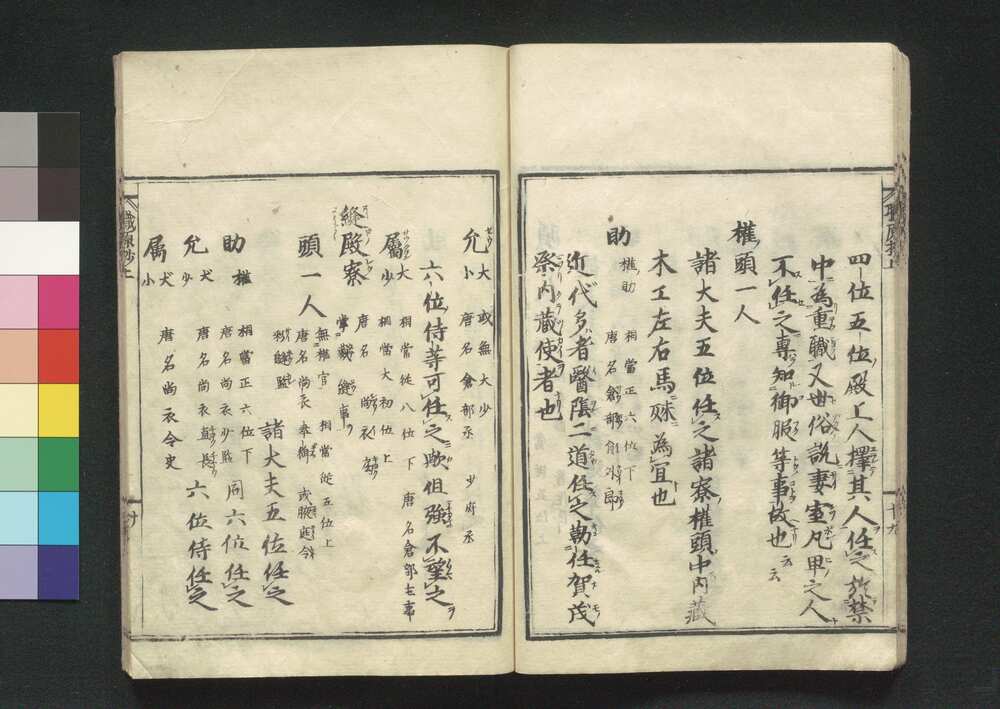 四位五位殿上人擇其人任之於禁
中為重職又世俗説妻室凡卑之人
不任之専知御服等事故也云云
權頭一人
諸大夫五位任之諸寮權頭中内藏
木工左右馬殊為宜也
助 權助 相當正六位下
唐名倉部員外郎
近代多者醫陰二道任之勅任賀茂
祭内藏使者也
允 大少 或無大少
唐名倉部丞 少府丞
六位侍等可任之歟但強不望之
屬 大少 相當從八位下 唐名倉部主事
相當大初位上
縫殿寮 唐名 尚衣
掌裁縫事
頭一人 無權官 相當從五位上
唐名尚衣奉御 或腋廷令
諸大夫五位任之
助 權 相當正六位下 同六位任之
唐名尚衣少監
允 大少 唐名尚衣直長 六位侍任之
屬 大少 唐名尚衣令史
職原抄上
十九
職原抄上
廿